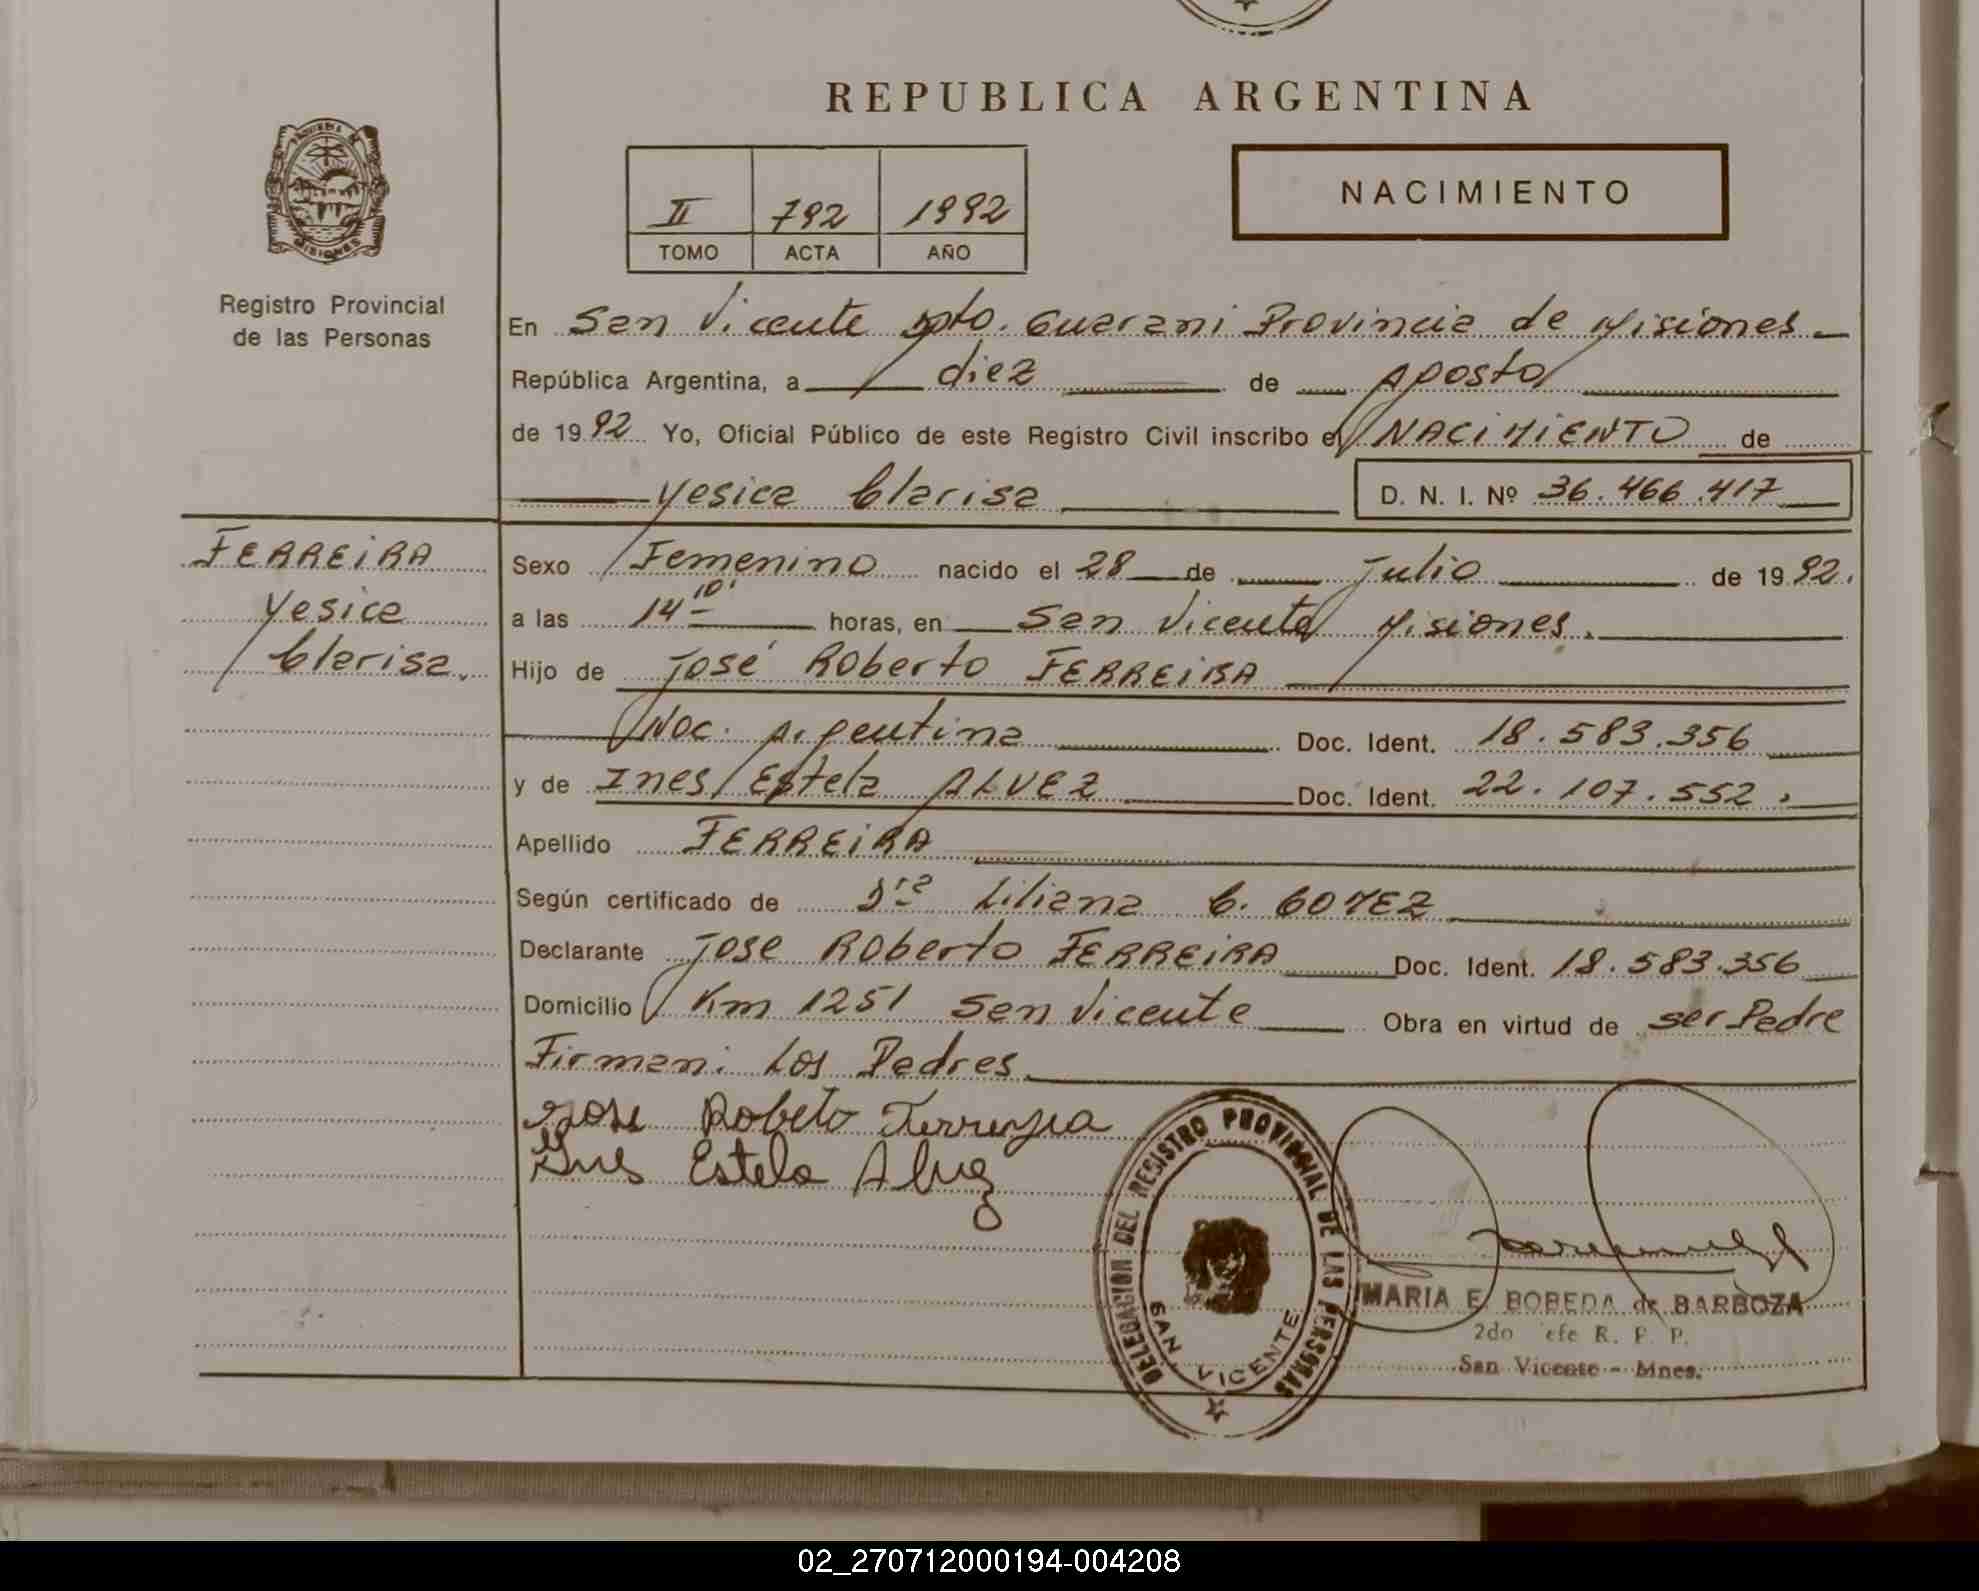 REPUBLICA ARGENTINA
MISIONES
Registro Provincial
de las Personas
II 792 1992
TOMO ACTA AÑO
NACIMIENTO
En San Vicente Dpto. Guarani Provincia de Misiones
República Argentina, a diez de Agosto
de 1992 Yo, Oficial Público de este Registro Civil inscribo el NACIMIENTO de
Yesica Clarisa D. N. I. Nº 36.466.417
FERREIRA
Yesica
Clarisa.
Sexo Femenino nacido el 28 de Julio de 1992.
a las 14 10' horas, en San Vicente Misiones.
Hijo de José Roberto FERREIRA
Nac. Argentina Doc. Ident. 18.583.356
y de Ines Estela ALVEZ Doc. Ident. 22.107.552.
Apellido FERREIRA
Según certificado de Dra Liliana C. GOMEZ
Declarante Jose Roberto FERREIRA Doc. Ident. 18.583.356
Domicilio Km 1251 San Vicente Obra en virtud de ser Padre
Firman: Los Padres.
Jose Robeto
Ines Estela Alvez
DELEGACION DEL REGISTRO PROVINCIAL DE LAS PERSONAS
SAN VICENTE
MARIA E. BOBEDA de BARBOZA
2do efe R. P. P.
San Vicente - Mnes.
02_270712000194-004208